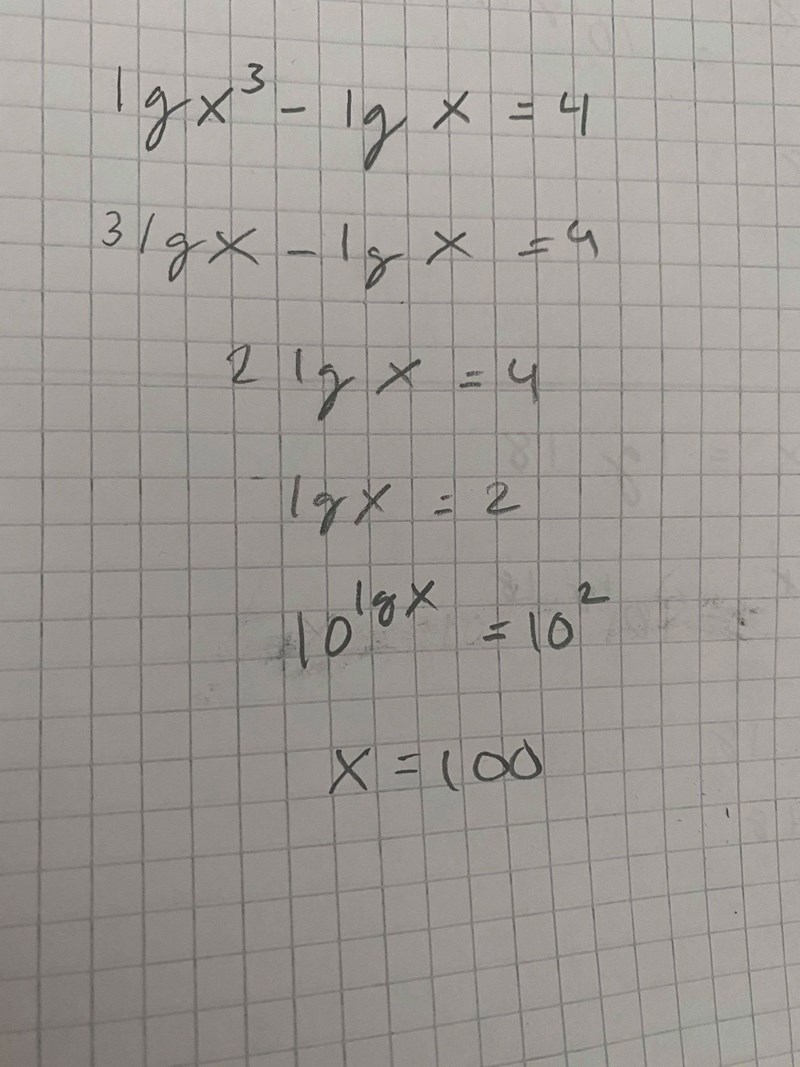 lg x³ - lg x = 4
3 lg x - lg x = 4
2 lg x = 4
lg x = 2
10^lg x = 10²
x = 100